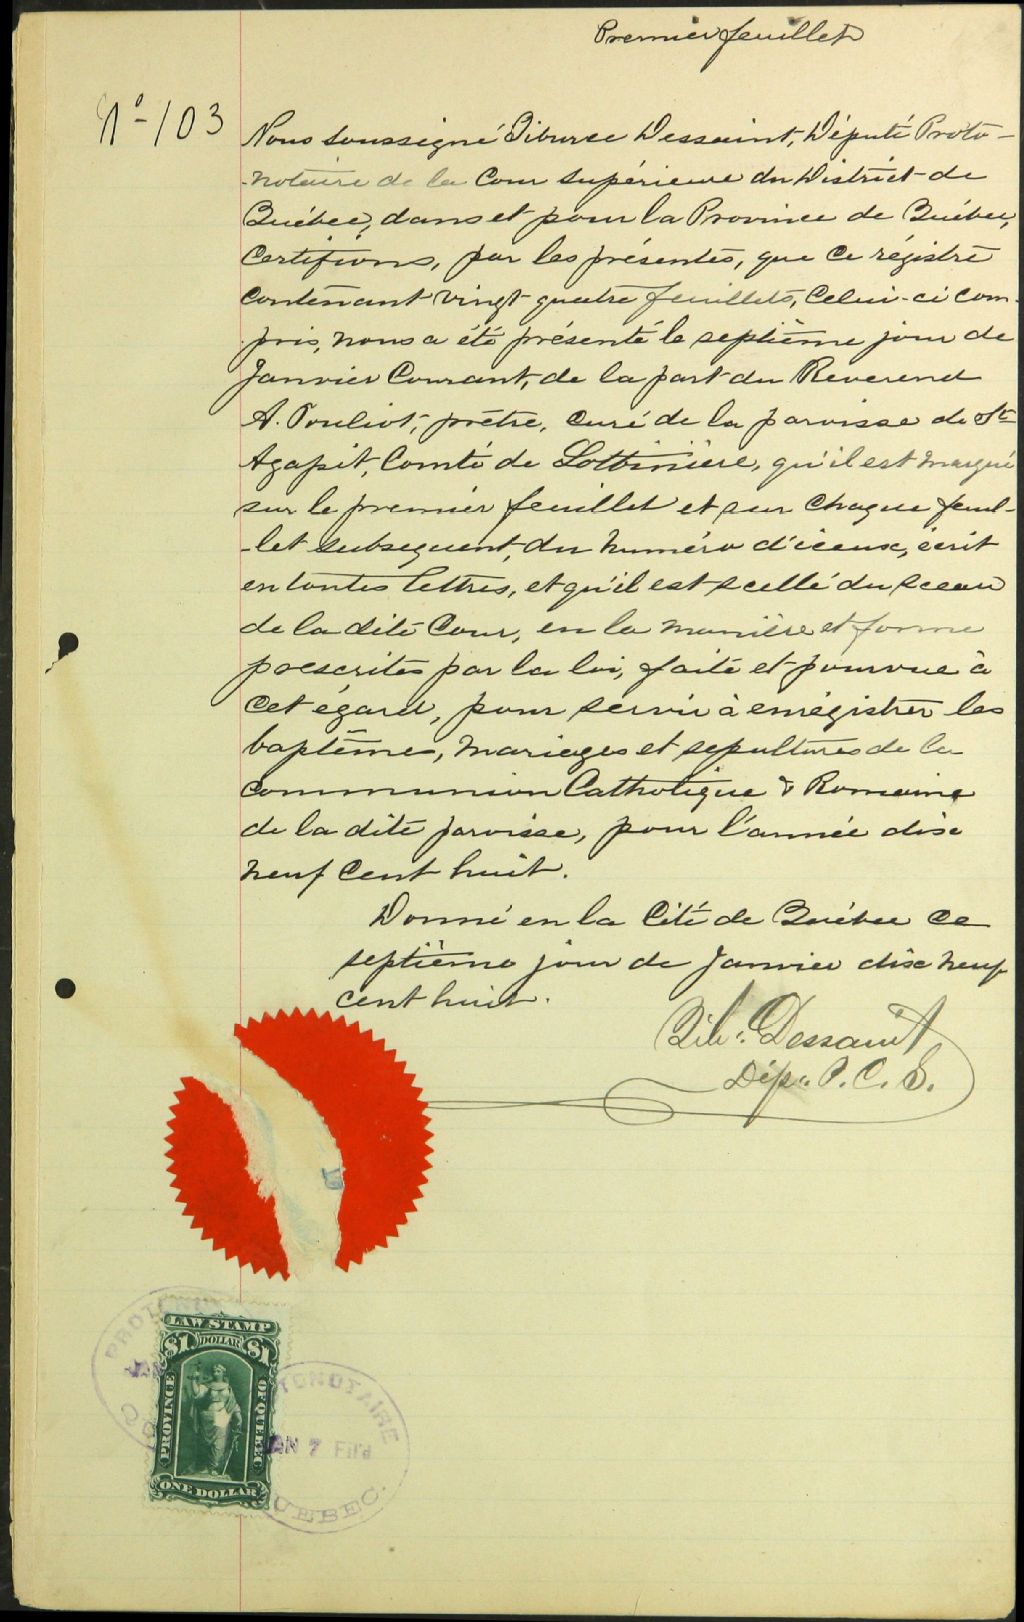 Premier feuillet
No 103
Nous soussigné Tiburce Dessaint, Député Proto-
-notaire de la Cour Supérieure du District de
Québec, dans et pour la Province de Québec,
Certifions, par les présentes, que ce régistre
contenant vingt quatre feuillets, celui-ci com-
pris, nous a été présenté le septième jour de
Janvier Courant, de la part du Reverend
A. Pouliot, prêtre, curé de la paroisse de St
Agapit, Comté de Lotbinière, qu'il est marqué
sur le premier feuillet et sur chaque feuil-
-let subsequent, du numéro d'iceux, écrit
en toutes lettres, et qu'il est scellé du sceau
de la dite Cour, en la manière et forme
prescrites par la loi, faite et pourvue à
cet égard, pour servir à enrégistrer les
baptêmes, mariages et sepultures de la
Communion Catholique & Romaine
de la dite paroisse, pour l'année dix
neuf cent huit.
Donné en la Cité de Québec ce
septième jour de Janvier dix neuf
cent huit.
Tib. Dessaint
Dép. P. C. S.
LAW STAMP
$1 DOLLAR $1
PROVINCE OF QUEBEC
ONE DOLLAR
PROTO
JAN
TONOTAIRE
AN 7 Fil'd
UEBEC.